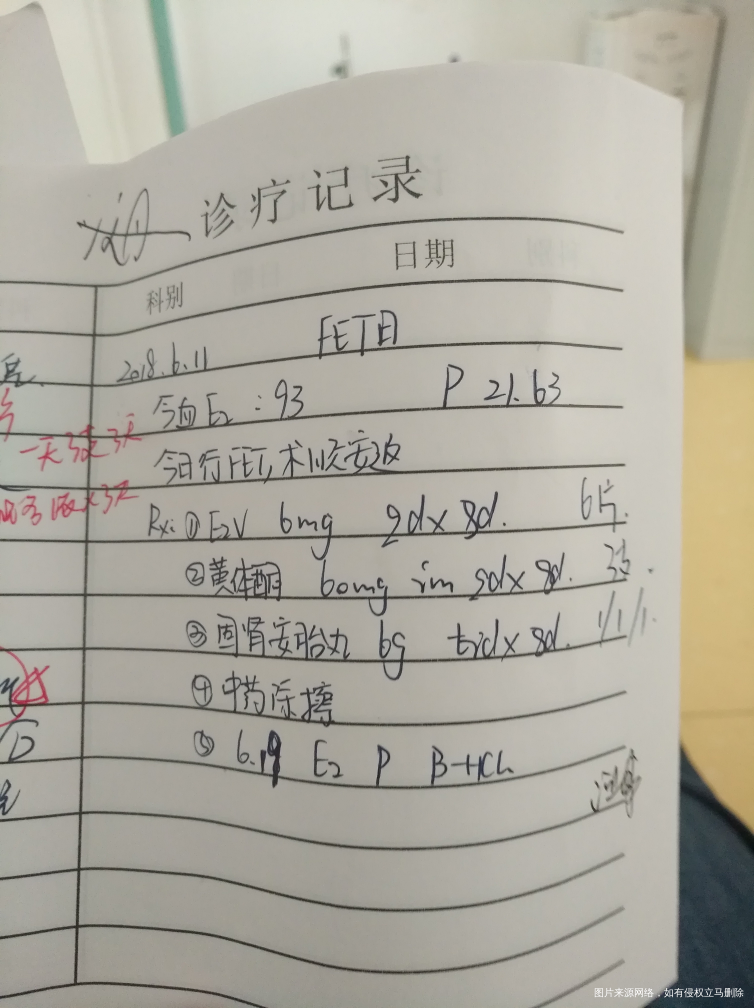 诊疗记录
科别 日期
2018.6.11 FET日
今血E2:93 P 21.63
今日行FET,术顺安返
一天3支3天
Rx:①E2V 6mg Qd×8d. 6片.
×3天
②黄体酮 60mg im Qd×8d. 3支.
③固肾安胎丸 6g tid×8d. 1/1/1.
④中药涂擦
⑤ 6.19 E2 P B-HCG
图片来源网络,如有侵权立马删除